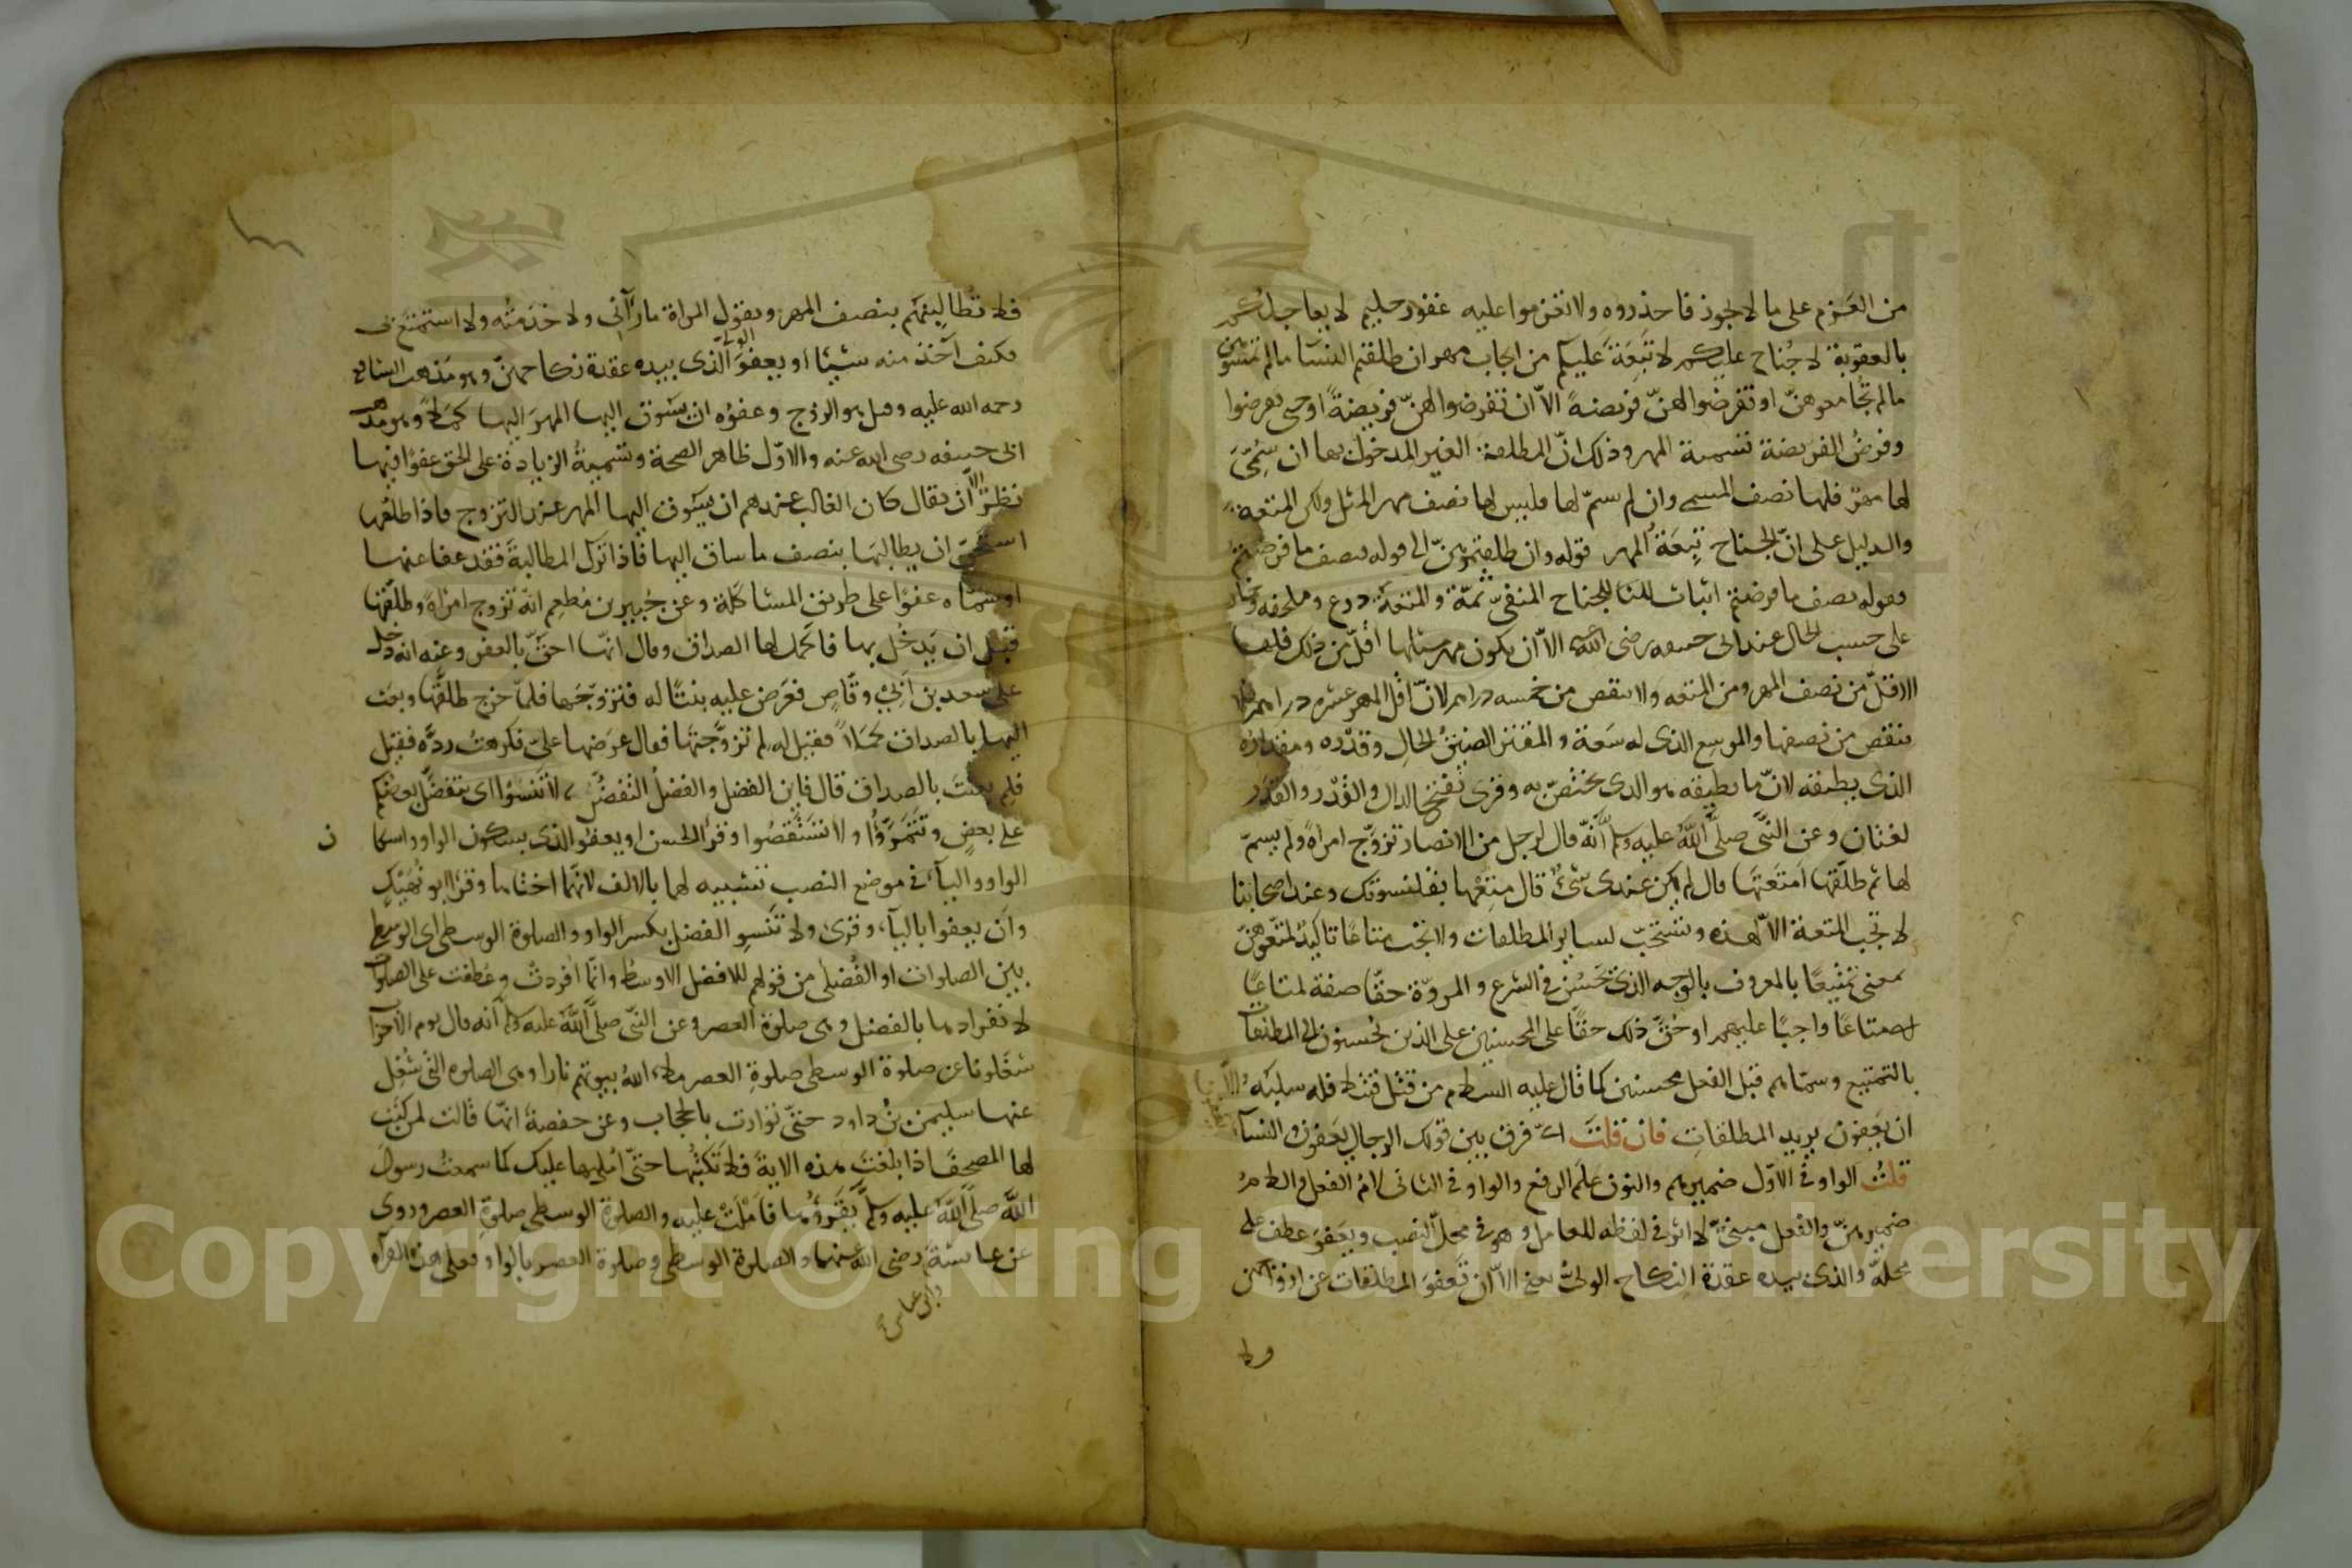 من العزم على ما لا يجوز فاحذروه ولا تعزموا عليه غفور حليم لا يعاجلكم
بالعقوبة لا جُناح عليكم لا تَبِعَةَ عليكم من ايجاب مهر ان طلقتم النسا مالم تمسّوهن
مالم تُجامعوهنّ او تفرضوا لهنّ فريضةً الاّ ان تفرضوا لهنّ فريضةً او حتى تفرضوا
وفرضُ الفريضة تسمية المهر وذلك انّ المطلقة الغير المدخول بها ان سُمِّىَ
لها مهرٌ فلها نصف المسمى وان لم يسمّ لها فليس لها نصف مهر المثل ولكن المتعة
والدليل على انّ الجناح تَبِعَةُ المهر قوله وان طلقتموهنّ الى قوله فنصف ما فرضتم
فقوله فنصف ما فرضتم اثبات للجناح المنفىّ ثَمّة والمتعة درع وملحفه وخمار
على حسب الحال عند ابى حنيفه رضى الله عنه الاّ ان يكون مهر مثلها أقلّ من ذلك فلها
الاقلّ من نصف المهر ومن المتعه ولا ينقص من خمسه دراهم لانّ اقل المهر عشره دراهم فلا
ينقص من نصفها والموسِع الذى له سَعة والمقتر الضيّقُ الحالِ وقَدَره ومقداره
الذى يطيقه لانّ ما يطيقه هو الذى يختصّ به وقرئ بفتح الدال والقَدْر والقَدَر
لغتان وعن النبىّ صلى اللّه عليه وسلم أنّه قال لرجل من الانصار تزوّج امراةً ولم يسمّ
لها ثم طلّقها اَمتَّعتَها قال لم يكن عندى شئٌ قال متِّعْها بقلنسوتك وعند اصحابنا
لا تجب المتعة الاّ لهذه وتستحبّ لساير المطلقات ولا تجب متاعًا تاكيدٌ لمتّعوهنّ
بمعنى تمتيعًا بالمعروف بالوجه الذى يَحْسُن فى الشرع والمروّة حقّا صفة لمتاعًا
اى متاعًا واجبًا عليهم او حُقَّ ذلك حقًا على المحسنين على الذين يُحسنون الى المطلقات
بالتمتيع وسمّاهم قبل الفعل محسنين كما قال عليه السلام من قتل قتيلا فله سلبُه الّا
ان يعفون يريد المطلقاتِ فان قلتَ اىّ فرق بين قولك الرجال يعفون والنسآ
يعفون
قلتُ الواو فى الاوّل ضميرهم والنون علَم الرفع والواو فى الثانى لامُ الفعل والنون
ضميرهنّ والفعل مبنىٌّ لا اثر فى لفظه للعامل وهو فى محلّ النصب ويعفوَ عطف على
محلّه والذى بيده عقدة النكاح الولىُّ يعنى الاّ ان تَعفوَ المطلقات عن ازواجهن
ولا
فلا تُطالبنهم بنصف المهر وتقول المراة ما رَآنى ولا خدَمتُه ولا استمتع بى
فكيف آخذ منه شيئا او يعفوَ الولى الذى بيده عقدة نكاحهنّ وهو مذهب الشافعى
رحمه الله عليه وقيل هو الزوج وعفوُه ان يسوق اليها المهرَ كَمَلًا وهو مذهب
ابى حنيفه رضى الله عنه والاوّل ظاهر الصحة وتسميةُ الزيادة على الحق عفوًا فيها
نظرٌ الّا ان يقال كان الغالب عندهم ان يَسُوق اليها المهر عند التزوج فاذا طلقها
استحقّ ان يطالبَها بنصف ما ساق اليها فاذا ترك المطالبةَ فقد عفا عنها
او سمّاه عفوًا على طريق المشاكلة وعن جُبير بن مُطعِم انّه تزوج امراةً وطلّقها
قبل ان يَدخُل بها فاكمل لها الصداق وقال انّا احقُّ بالعفو وعنه انه دخل
على سعد بن اَبى وقّاصٍ فعَرض عليه بنتًا له فتزوّجها فلمّا خرج طلقَّها وبعث
اليها بالصداق كَمَلًا فقيل له لِم تزوّجتَها فقال عرَضها علىّ فكرهتُ ردّه فقيل
فلِم بعثتَ بالصداق قال فاين الفضل والفضلُ التفضُّل لا تَنسَوْا اى يتفضّل بعضكم
على بعضٍ وتَتَمَرّؤُا ولا تَسْتَقْصُوا وقرأ الحسن او يعفوْ الذى بسكون الواو واسكان
الواو والياءِ فى موضع النصب تشبيه لهما بالالف لانّهما اختاها وقرأ ابو نُهَيْك
وَاَن يعفوا بالياء وقرئ ولا تَنْسَوِ الفضل بكسر الواو والصلوة الوسطى اى الوسطى
بين الصلوات او الفُضلى من قولهم للافضل الاوسط وانّما أُفردتْ وعُطفت على الصلوات
لانفرادها بالفضل وهى صلوة العصر وعن النبىّ صلّى اللّه عليه وسلم أنه قال يوم الاحزاب
شغلونا عن صلوة الوسطى صلوةِ العصر ملاء اللهُ بيوتهم نارا وهى الصلوه التى شُغِل
عنها سليمن بنُ داود حتىّ توارت بالحجاب وعن حفصة انّها قالت لمن كتب
لها المصحفَ اذا بلغتَ هذه الايةَ فلا تَكتبْها حتّى اُمليها عليك كما سمعتُ رسولَ
اللّه صلّى اللّه عليه وسلّم يَقرَؤُها فَاَملّتْ عليه والصلوة الوسطى صلوةِ العصر وروى
عن عائشة وابن عباس رضى الله عنهما والصلوة الوسطى وصلوة العصر بالواو فعلى هذه القرآه